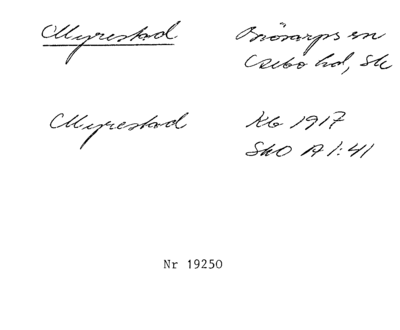 Myrestad Brösarps sn
Albo hd, Sk
Myrestad Kb 1917
SkO A 1:41
Nr 19250